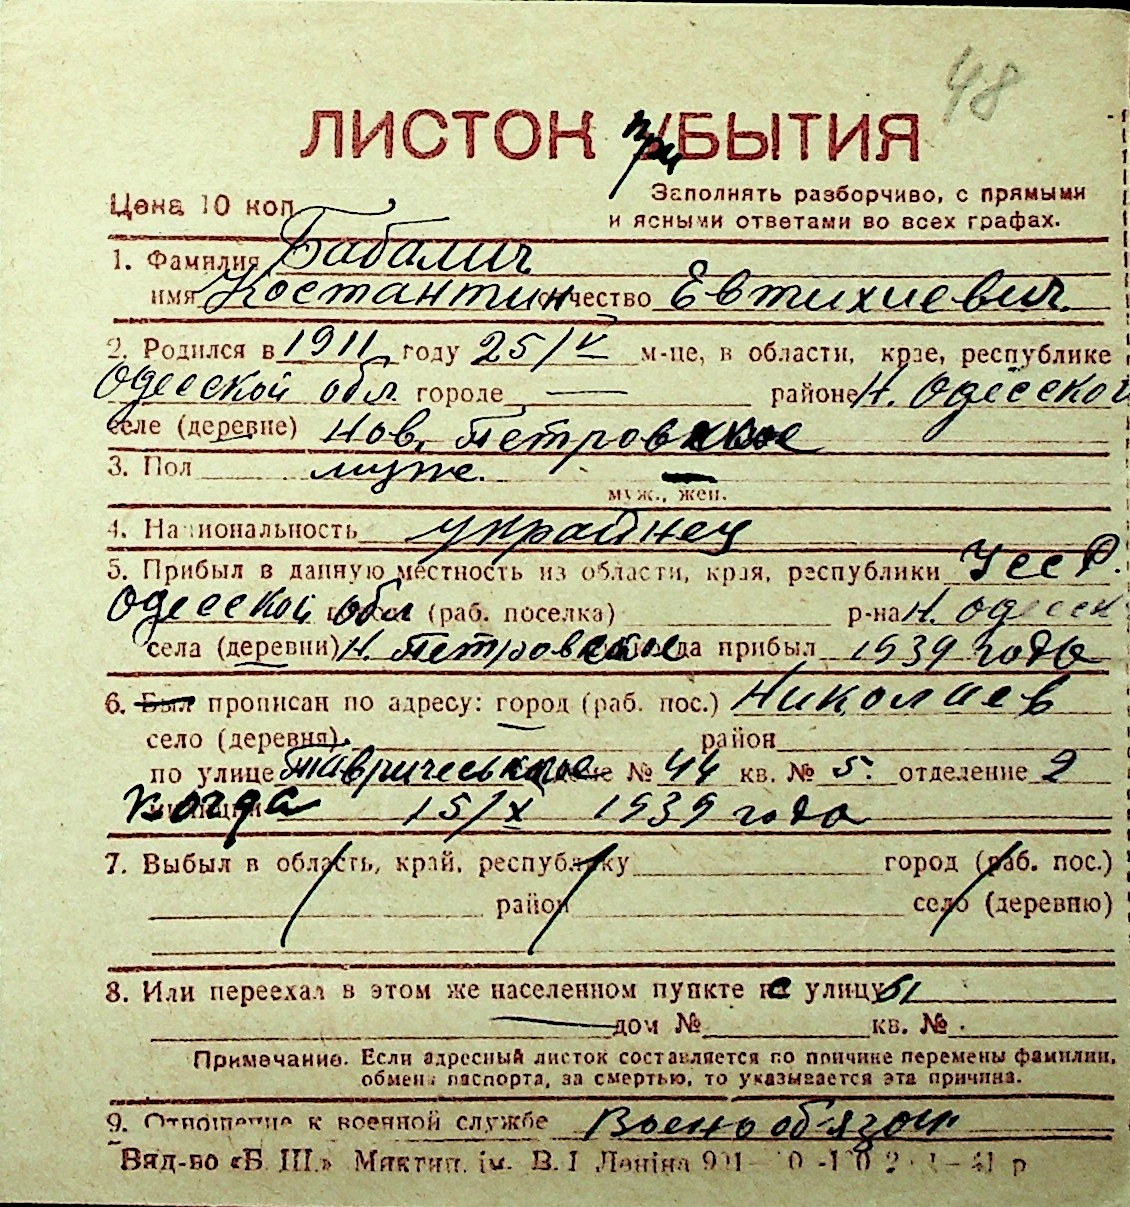 48
ЛИСТОК приБЫТИЯ
Цена 10 коп.
Заполнять разборчиво, с прямыми
и ясными ответами во всех графах.
1. Фамилия Бабалич
имя Костантин отчество Евтихиевич.
2. Родился в 1911 году 25/V м-це, в области, крае, республике
Одесской обл. городе — районе Н. Одесской
селе (деревне) Нов. Петровское
3. Пол муже.
муж., жен.
4. Национальность украинец
5. Прибыл в данную местность из области, края, республики УССР.
Одесской обл (раб. поселка) р-на Н. Одесск
села (деревни) Н. Петровское когда прибыл 1939 года
6. Был прописан по адресу: город (раб. пос.) Николаев
село (деревня) район
по улице Тавричесько № 44 кв. № 5. отделение 2
Когда 15/X 1939 года
7. Выбыл в область, край, республику город (раб. пос.)
район село (деревню)
8. Или переехал в этом же населенном пункте с улицы
— дом № кв. №
Примечание. Если адресный листок составляется по причине перемены фамилии,
обмена паспорта, за смертью, то указывается эта причина.
9. Отношение к военной службе Военобязан
Вид-во «Б. Ш.» Миктип. ім. В. І Леніна